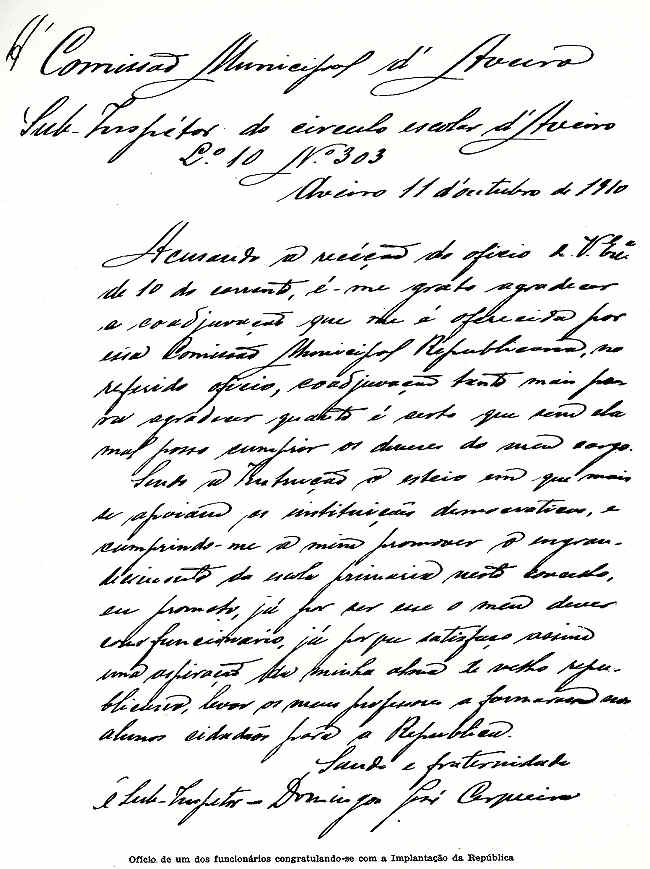 Á Comissão Municipal d'Aveiro
Sub-Inspétor do circulo escolar d'Aveiro
L.º 10 N.º 303
Aveiro 11 d'outubro de 1910
Acusando a recéção do oficio de V. Ex.ª
de 10 do corrente, é-me grato agradecer
a coadjuvação que me é oferecida por
essa Comissão Municipal Republicana, no
referido oficio, coadjuvação tanto mais pa-
ra agradecer quanto é certo que sem ela
mal posso cumprir os deveres do meu cargo.
Sendo a Instrução o esteio em que mais
se apoiam as instituições democraticas, e
cumprindo-me a mim promover o engran-
decimento da escola primaria neste concelho,
eu prometo, já por ser esse o meu dever
como funcionario, já porque satisfaço assim
uma aspiração da minha alma de velho repu-
blicano, levar os meus professores a formarem nos
alunos cidadãos para a Republica.
Saude e fraternidade
O Sub-Inspetor = Domingos José Cerqueira
Ofício de um dos funcionários congratulando-se com a Implantação da República